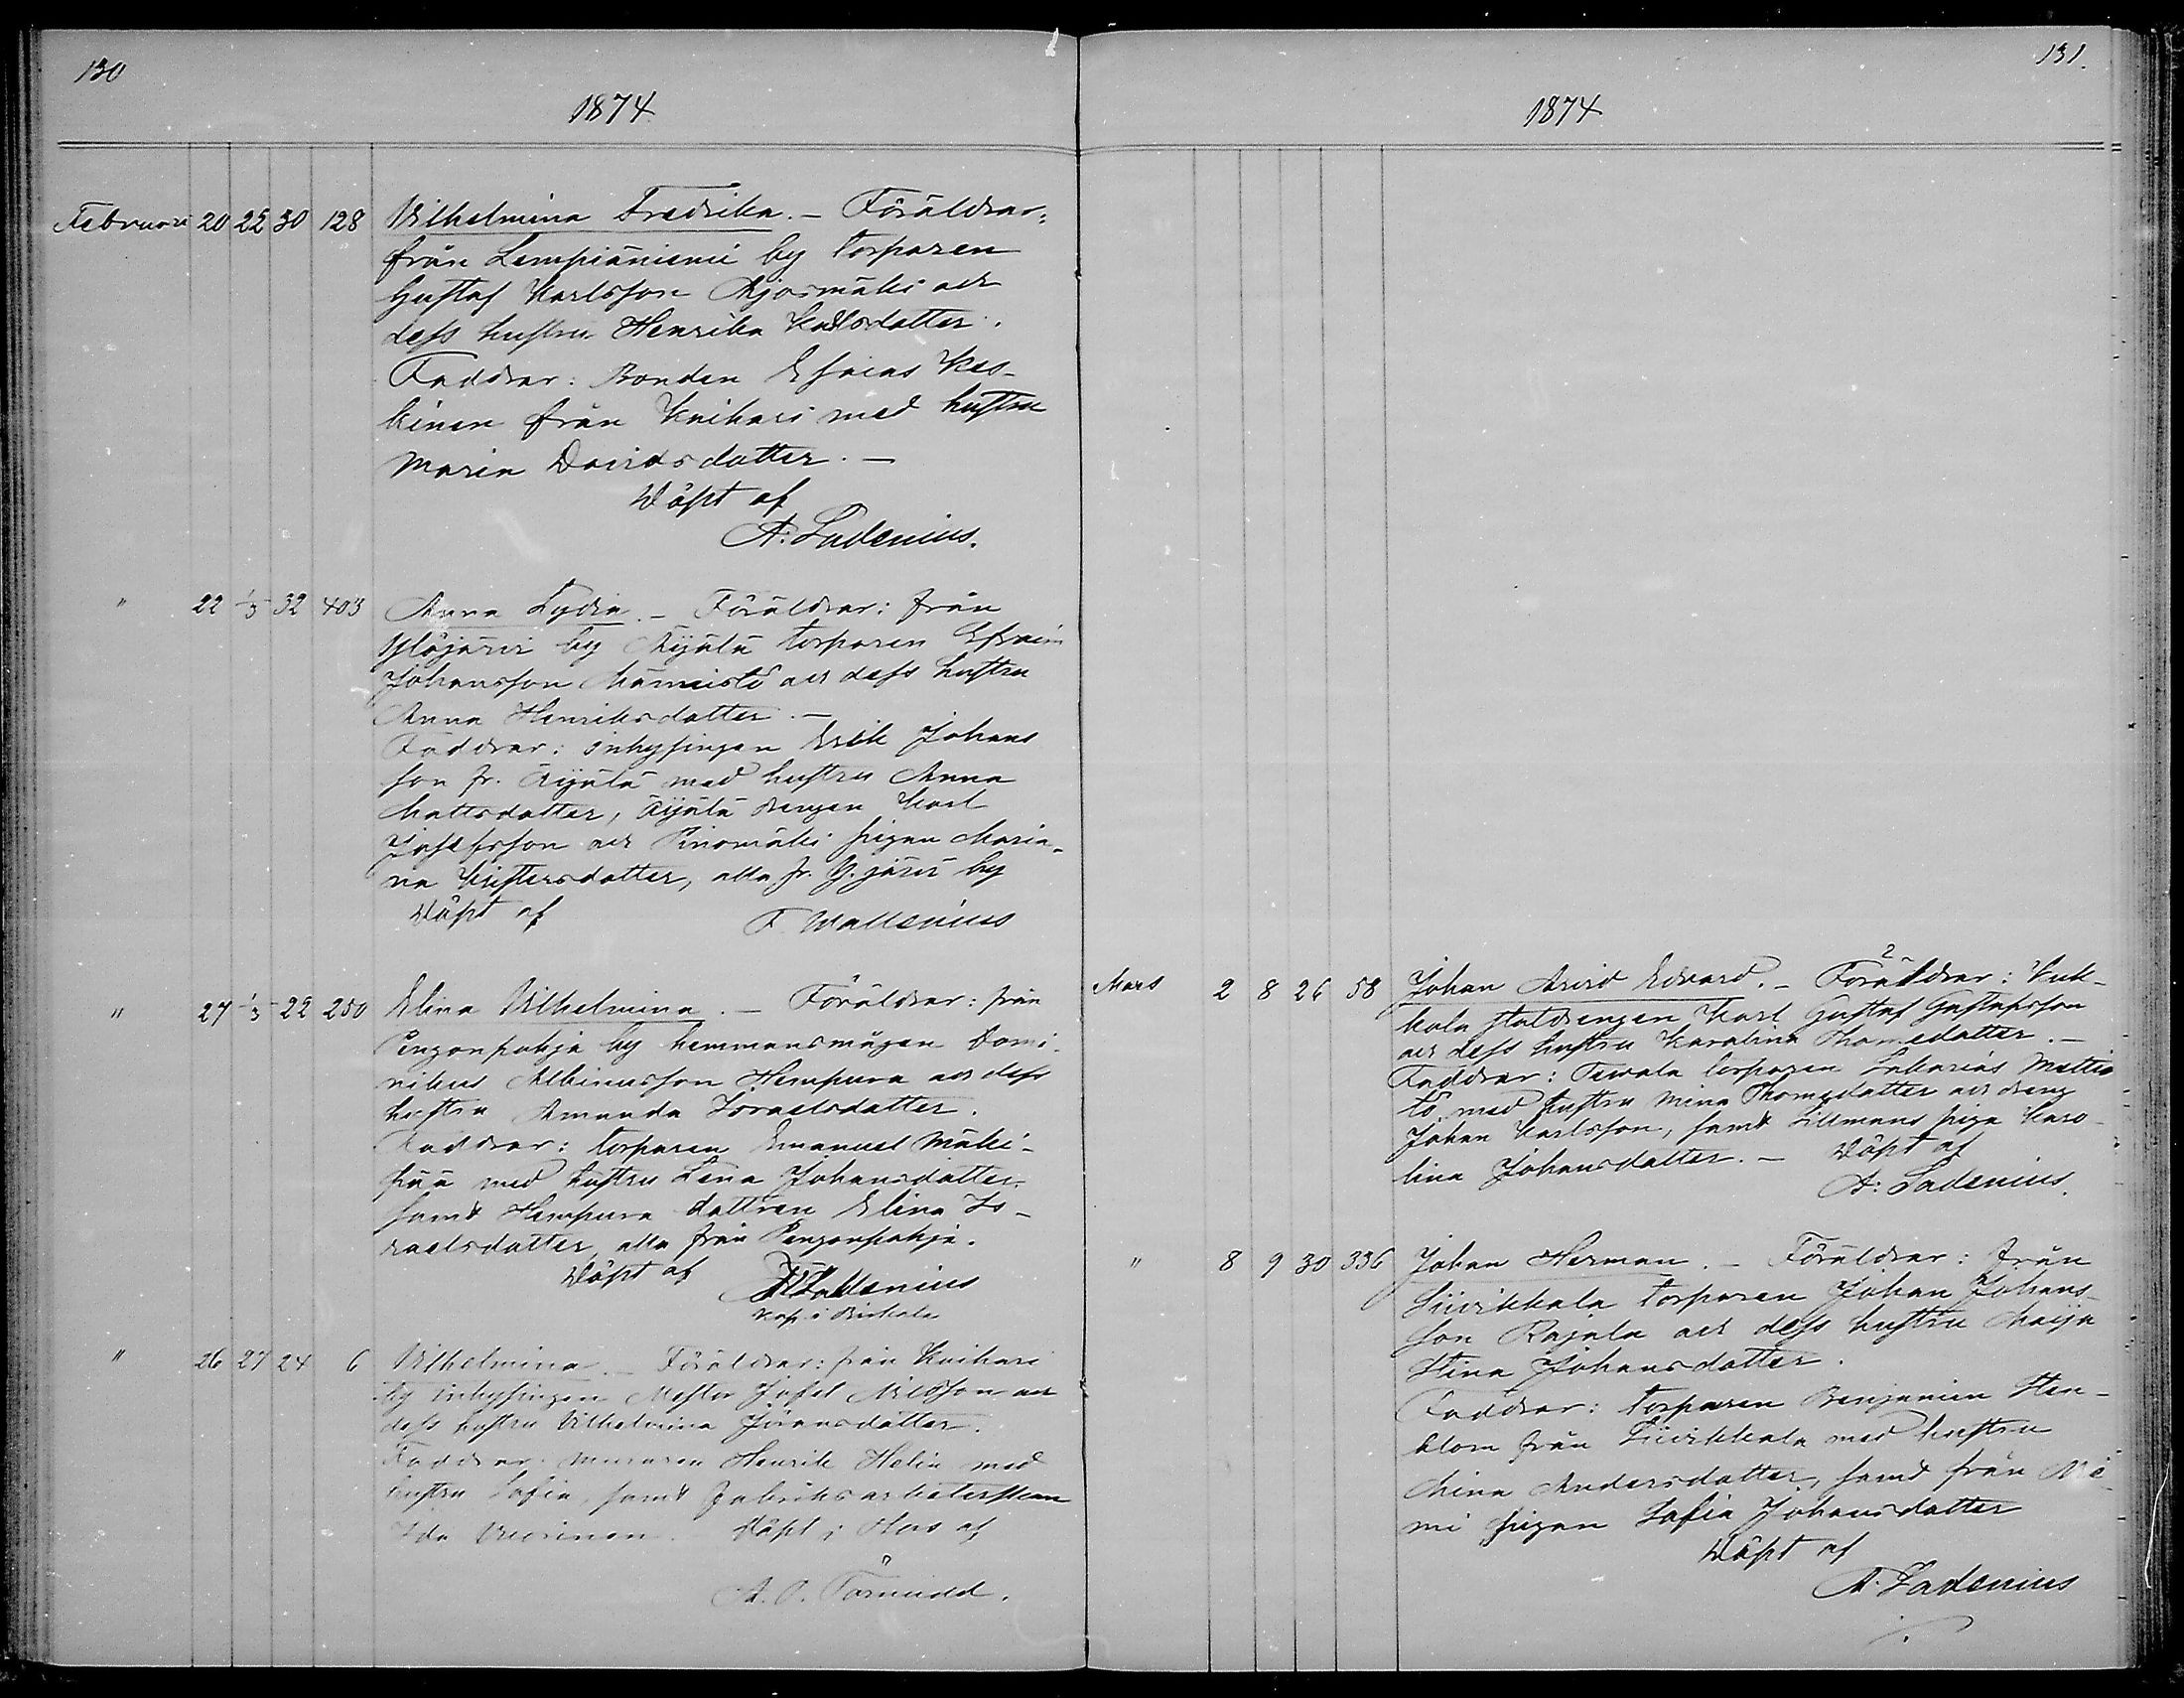 130
1874
Februari 20 25 30 128 Vilhelmina Fredrika. – Föräldrar:
från Lempiäniemi by torparen
Gustaf Karlsson Ojasmäki och
dess hustru Henrika Karlsdotter.
Faddrar: Bonden Esaias Kes-
kinen från Knihari med hustru
Maria Davidsdotter. –
Döpt af
A. Ladenius.
" 22 1/3 32 403 Anna Lydia. – Föräldrar: från
Ylöjärvi by Äijälä torparen Efraim
Johansson Männistö och dess hustru
Anna Henriksdotter. –
Faddrar: inhysingen Erik Johans
son fr. Äijälä med hustru Anna
Mattsdotter, Äijälä drengen Karl
Josefsson och Pinomäki pigan Maria-
na Kristersdotter, alla fr. Y.järvi by
Döpt af F. Wallenius
" 27 1/3 22 250 Elina Vilhelmina. – Föräldrar: från
Pengonpohja by hemmansmågen Domi-
nikus Albinusson Hempura och dess
hustru Amanda Israelsdotter.
Faddrar: torparen Emanuel Mäki-
pää med hustru Lena Johansdotter
samt Hempura dottren Elina Is-
raelsdotter, alla från Pengonpohja.
Döpt af F. Wallenius
Kap. i Birkala
" 26 27 24 6 Vilhelmina. – Föräldrar: från Knihari
by inhysingen Mestor Josef Nilsson och
dess hustru Vilhelmina Göransdotter.
Faddrar: muraren Henrik Helin med
hustru Sofia, samt Fabriksarbeterskan
Ida Vuorinen. Döpt i Hus af
A. O. Törnudd.
131.
1874
Mars 2 8 26 58 Johan Arvid Edvard. – Föräldrar: Kuk-
kola stalldrengen Karl Gustaf Gustafsson
och dess hustru Karolina Thomedotter. –
Faddrar: Teivala torparen Sakarias Mattis
tö med hustru Mina Thomedotter och dreng
Johan Karlsson, samt Lillmans piga Karo-
lina Johansdotter. – Döpt af
A. Ladenius.
" 8 9 30 336 Johan Herman. – Föräldrar: från
Siivikkala torparen Johan Johans-
son Rajala och dess hustru Maija
Stina Johansdotter.
Faddrar: torparen Benjamin Hen-
blom från Siivikkala med hustru
Mina Andersdotter, samt från Nie-
mi pigan Sofia Johansdotter
Döpt af
A. Ladenius